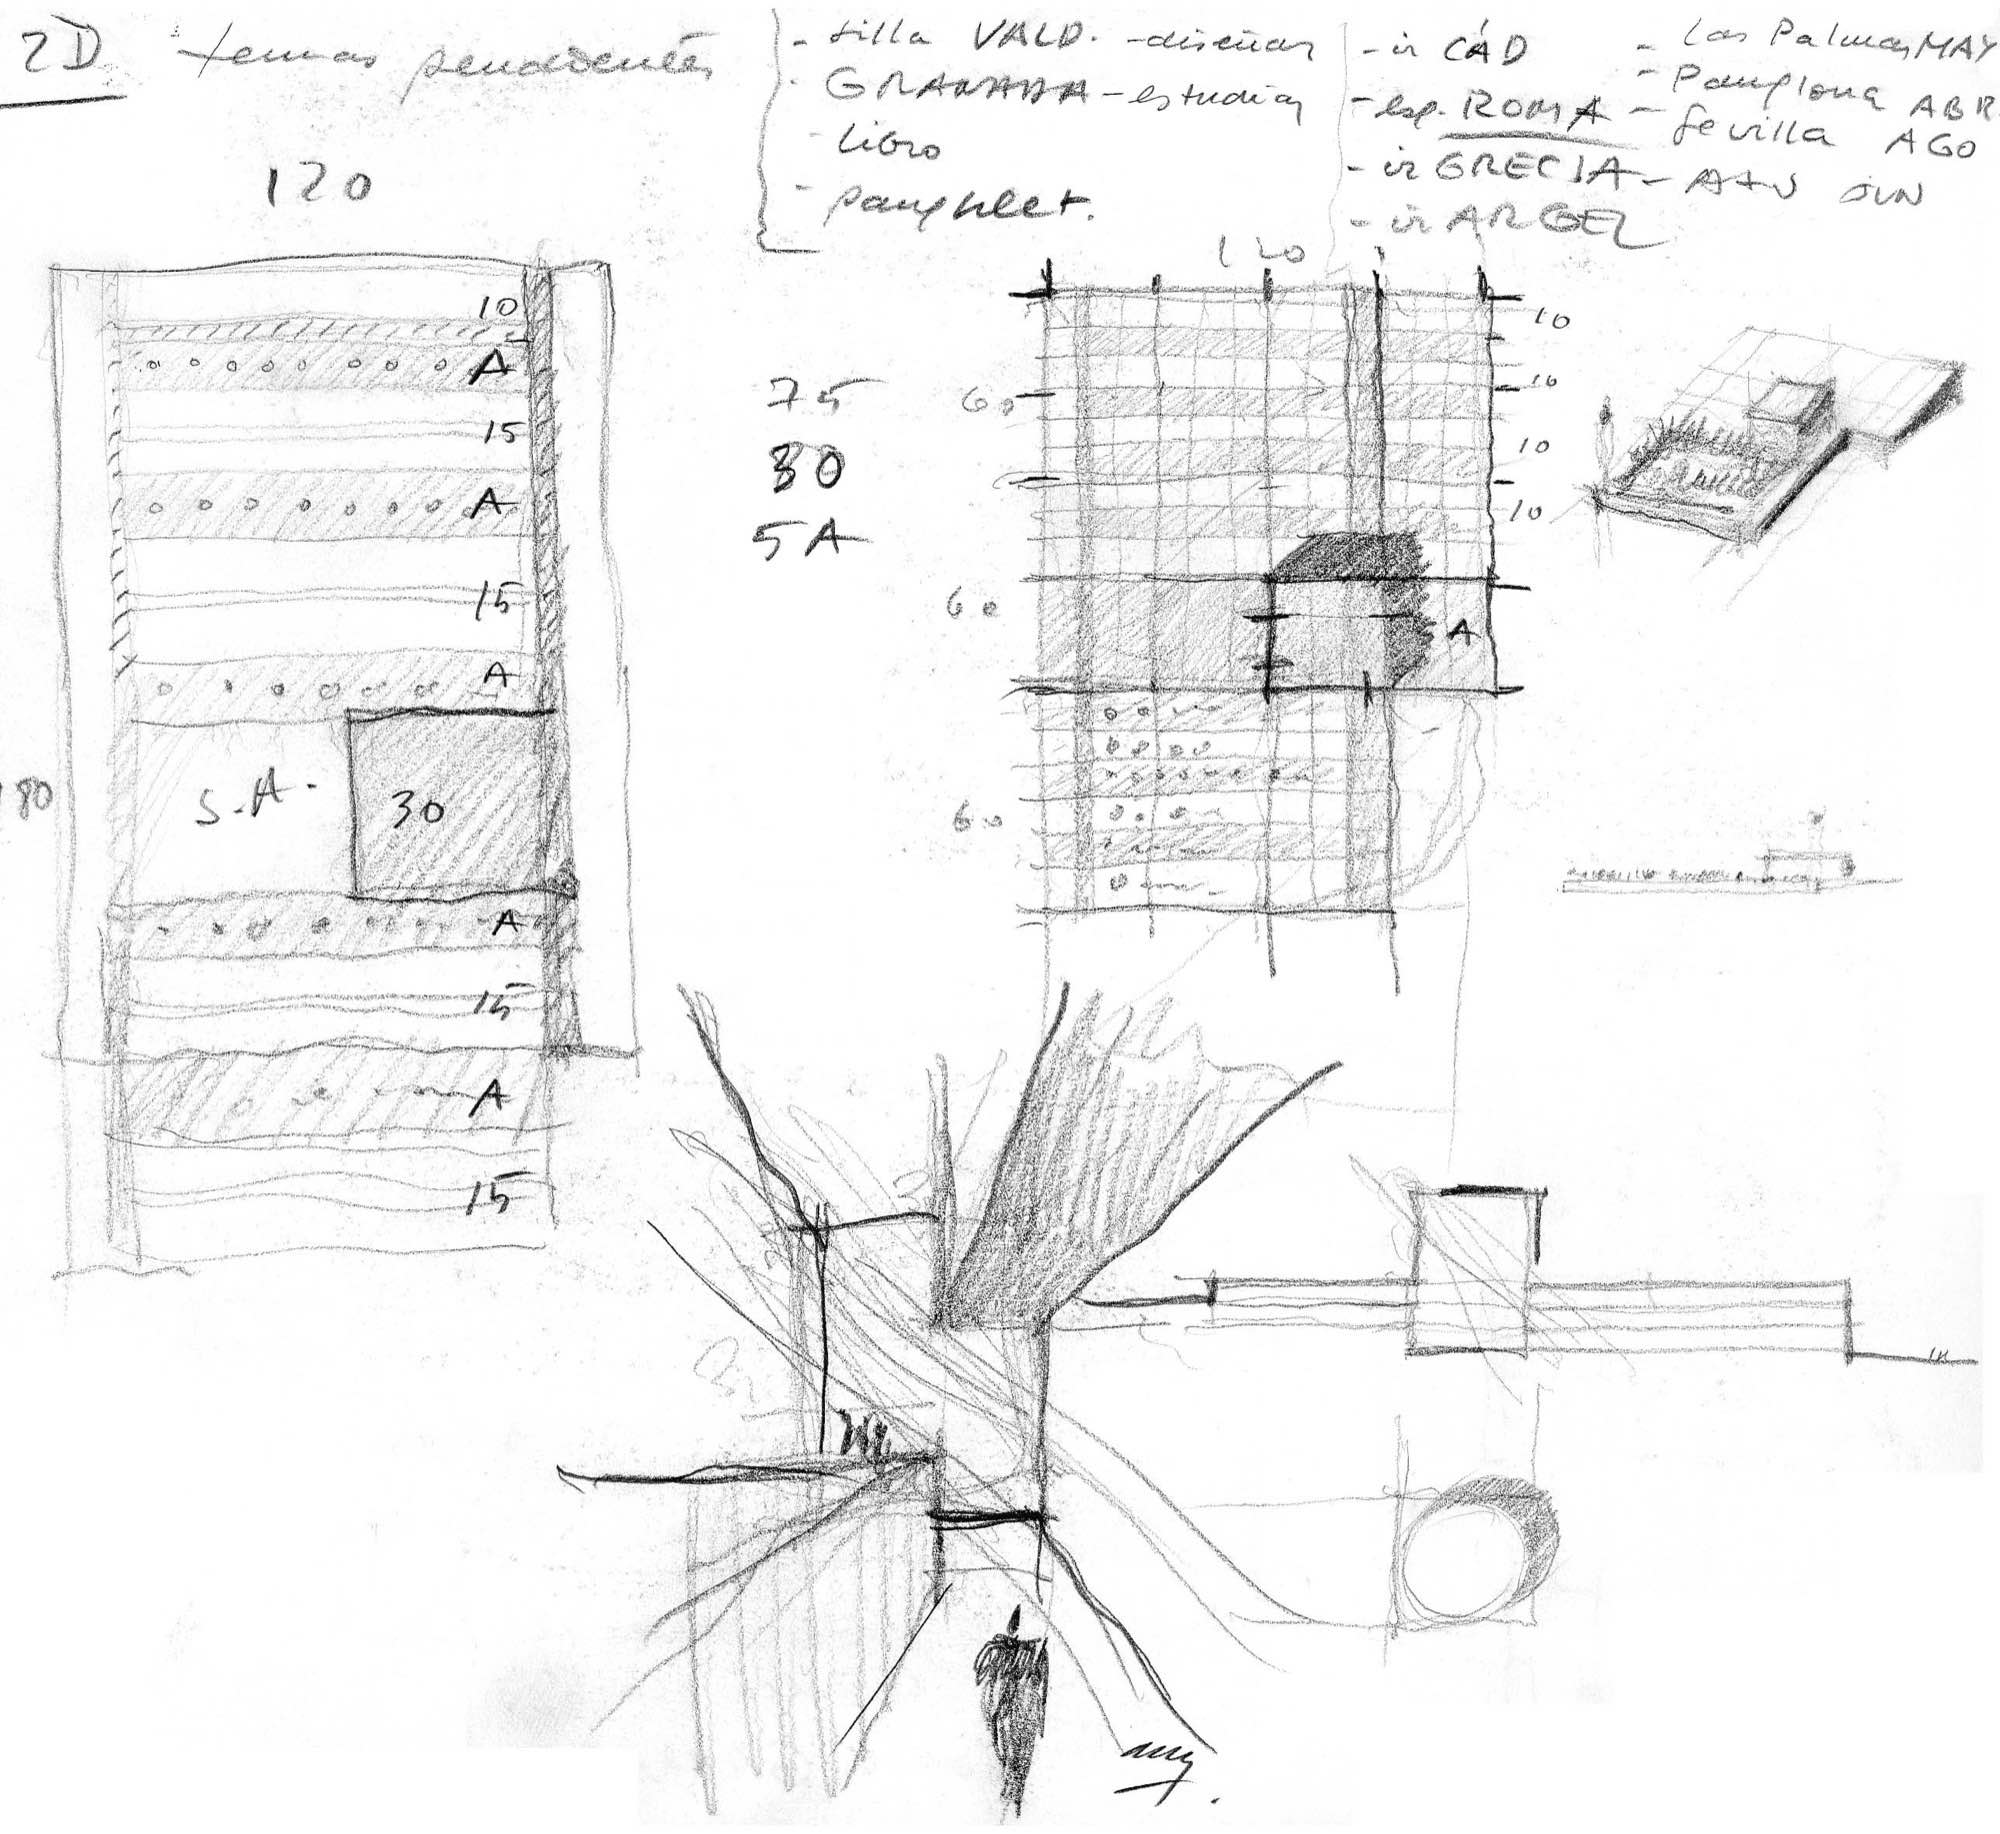 2D temas pendientes
- silla VALD. - diseñar
- GRANADA - estudiar
- libro
- pamphlet.
- ir CÁD
- esp. ROMA
- ir GRECIA - AIN JUN
- ir ARGEL
- Las Palmas MAY
- Pamplona ABR.
- Sevilla AGO
120
10
A
15
A
15
A
S.A.
30
A
15
A
15
180
75
30
5A
120
10
10
10
10
60
60
60
A